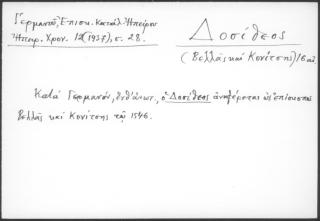 Γερμανοῦ, Ἐπισκ. Κατάλ. Ἠπείρου
Ἠπειρ. Χρον. 12 (1937), σ. 28.
Δοσίθεος
(Βελλᾶς καὶ Κονίτσης) 16 αἰ.
Κατὰ Γερμανόν, ἔνθ' ἀνωτ., ὁ Δοσίθεος ἀναφέρεται ὡς ἐπίσκοπος
Βελλᾶς καὶ Κονίτσης τῷ 1546.